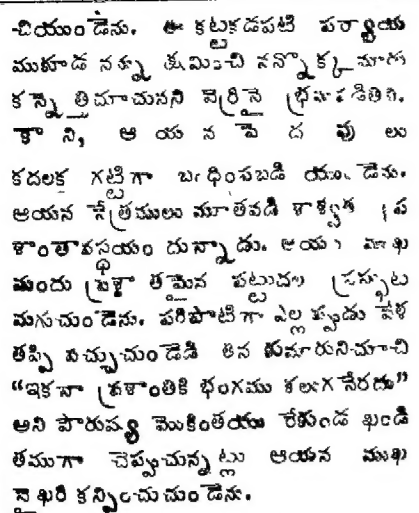 చియుండెను. ఈ కట్టకడపటి పర్యాయ
ముకూడ నన్ను క్షమించి నన్నొక్క మారు
కన్నెత్తిచూచునని వెర్రినై భ్రమపడితిని.
కాని, ఆయన పెదవులు
కదలక గట్టిగా బంధింపబడి యుండెను.
ఆయన నేత్రములు మూతవడి శాశ్వత ప్ర
శాంతావస్థయం దున్నాడు. ఆయన ముఖ
మందు తమైన పట్టుదల ప్రస్ఫుట
మగుచుండెను. పరిపాటిగా ఎల్లప్పుడు వేళ
తప్పి వచ్చుచుండెడి తన కుమారునిచూచి
“ఇకనా ప్రశాంతికి భంగము కలుగనేరదు”
అని పౌరుష్య మొకింతయు రేకుండ ఖండి
తముగా చెప్పుచున్నట్లు ఆయన ముఖ
వైఖరి కన్పించుచుండెను.